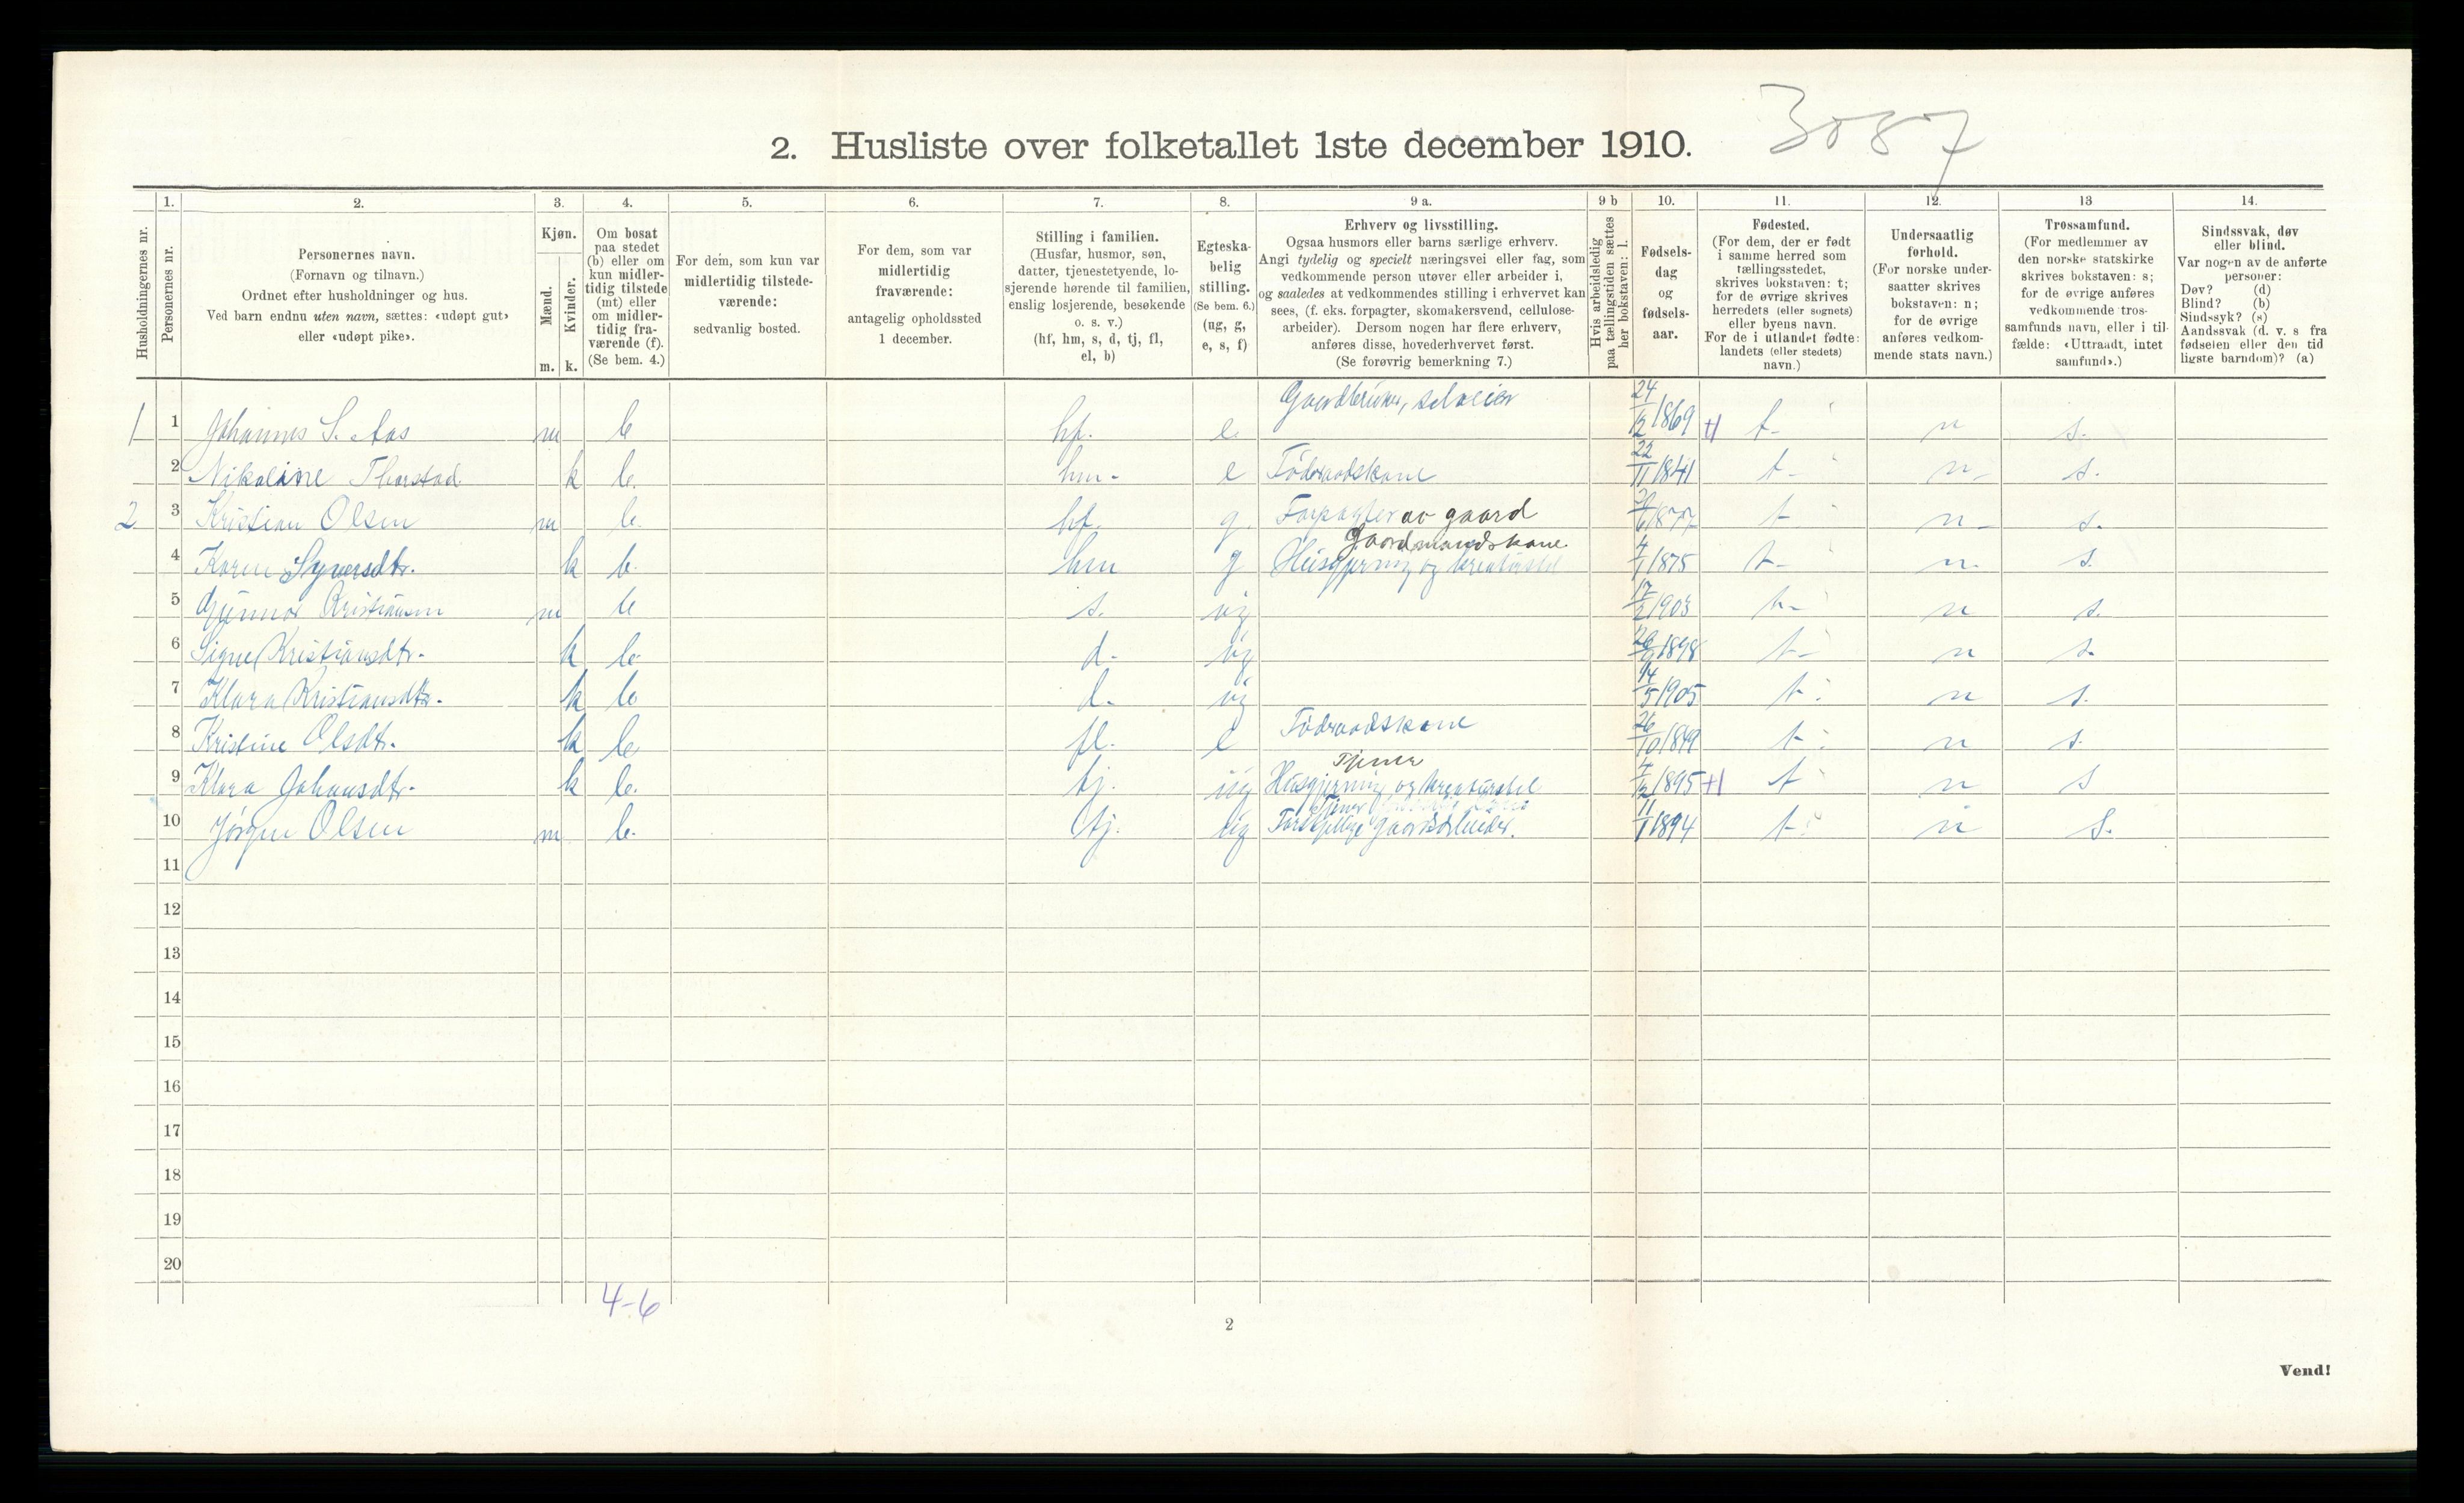 3087
2. Husliste over folketallet 1ste december 1910.
1. 2. 3. 4. 5. 6. 7. 8. 9 a. 9 b 10. 11. 12. 13 14.
Husholdningernes nr.
Personernes nr.
Personernes navn.
(Fornavn og tilnavn.)
Ordnet efter husholdninger og hus.
Ved barn endnu uten navn, sættes: «udøpt gut»
eller «udøpt pike».
Kjøn.
Mænd.
Kvinder.
m. k.
Om bosat
paa stedet
(b) eller om
kun midler-
tidig tilstede
(mt) eller
om midler-
tidig fra-
værende (f).
(Se bem. 4.)
For dem, som kun var
midlertidig tilstede-
værende:
sedvanlig bosted.
For dem, som var
midlertidig
fraværende:
antagelig opholdssted
1 december.
Stilling i familien.
(Husfar, husmor, søn,
datter, tjenestetyende, lo-
sjerende hørende til familien,
enslig losjerende, besøkende
o. s. v.)
(hf, hm, s, d, tj, fl,
el, b)
Egteska-
belig
stilling.
(Se bem. 6.)
(ug, g,
e, s, f)
Erhverv og livsstilling.
Ogsaa husmors eller barns særlige erhverv.
Angi tydelig og specielt næringsvei eller fag, som
vedkommende person utøver eller arbeider i,
og saaledes at vedkommendes stilling i erhvervet kan
sees, (f. eks. forpagter, skomakersvend, cellulose-
arbeider). Dersom nogen har flere erhverv,
anføres disse, hovederhvervet først.
(Se forøvrig bemerkning 7.)
Hvis arbeidsledig
paa tællingstiden sættes
her bokstaven: l.
Fødsels-
dag
og
fødsels-
aar.
Fødested.
(For dem, der er født
i samme herred som
tællingsstedet,
skrives bokstaven: t;
for de øvrige skrives
herredets (eller sognets)
eller byens navn.
For de i utlandet fødte:
landets (eller stedets)
navn.)
Undersaatlig
forhold.
(For norske under-
saatter skrives
bokstaven: n;
for de øvrige
anføres vedkom-
mende stats navn.)
Trossamfund.
(For medlemmer av
den norske statskirke
skrives bokstaven: s;
for de øvrige anføres
vedkommende tros-
samfunds navn, eller i til-
fælde: «Uttraadt, intet
samfund».)
Sindssvak, døv
eller blind.
Var nogen av de anførte
personer:
Døv? (d)
Blind? (b)
Sindssyk? (s)
Aandssvak (d. v. s fra
fødselen eller den tid
ligste barndom)? (a)
1 1 Johannes S. Aas m b hf. e. Gaardbruker, selveier 24/12 1869 t n s.
2 Nikoline Thorstad k b. hm. e Föderaadskone 22/11 1841 t n s.
2 3 Kristian Olsen m b. hf. g. Forpagter av gaard /6 1877 t n s.
Gaardmandskone
4 Karen Syversdtr. k b. hm g Husgjerning og kreaturstel 4/1 1875 t n. s.
5 Gunnar Kristiansen m b s. ug 17/2 1903 t n s.
6 Signe Kristiansdtr. k b. d. ug 1898 t n s.
7 Klara Kristiansdtr. k b d. ug 14/5 1905 t n s.
8 Kristine Olsdtr. k b fl. e Föderaadskone 26/10 1849 t n s.
Tjener
9 Klara Johansdtr. k b. tj. ug Husgjerning og kreaturstel /12 1895 t n s
Tjener
10 Jørgen Olsen m b. tj. ug Forskjellige gaardsarbeider. 11/1 1894 t n s.
11
12
13
14
15
16
17
18
19
20
4-6
2
Vend!